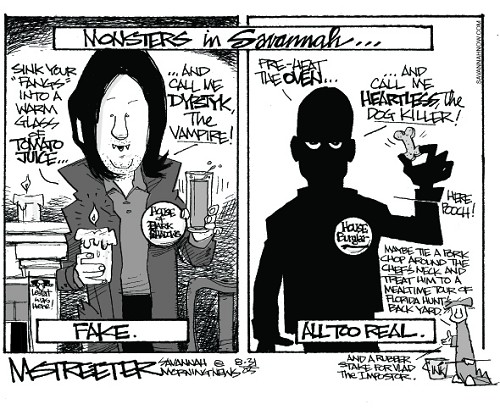 MONSTERS in Savannah...
SINK YOUR
"FANGS"
INTO A
WARM
GLASS
of
TOMATO
JUICE...
...AND
CALL ME
The
VAMPIRE!
HOUSE
of
DARK
SHADOWS
Lestat
was
Here!
FAKE.
PRE-HEAT
THE OVEN...
...AND
CALL ME
HEARTLESS, the
DOG KILLER!
HERE,
POOCH!
HOUSE
Burglar
MAYBE TIE A PORK
CHOP AROUND THE
CHEF'S NECK AND
TREAT HIM TO A
MEALTIME TOUR OF
FLORIDA HUNT'S
BACK YARD.
ALL TOO REAL.
AND A RUBBER
STAKE FOR VLAD
THE IMPOSTOR.
INK
MSTREETER
SAVANNAH
MORNING NEWS
©
8-31
05
SAVANNAHNOW.COM